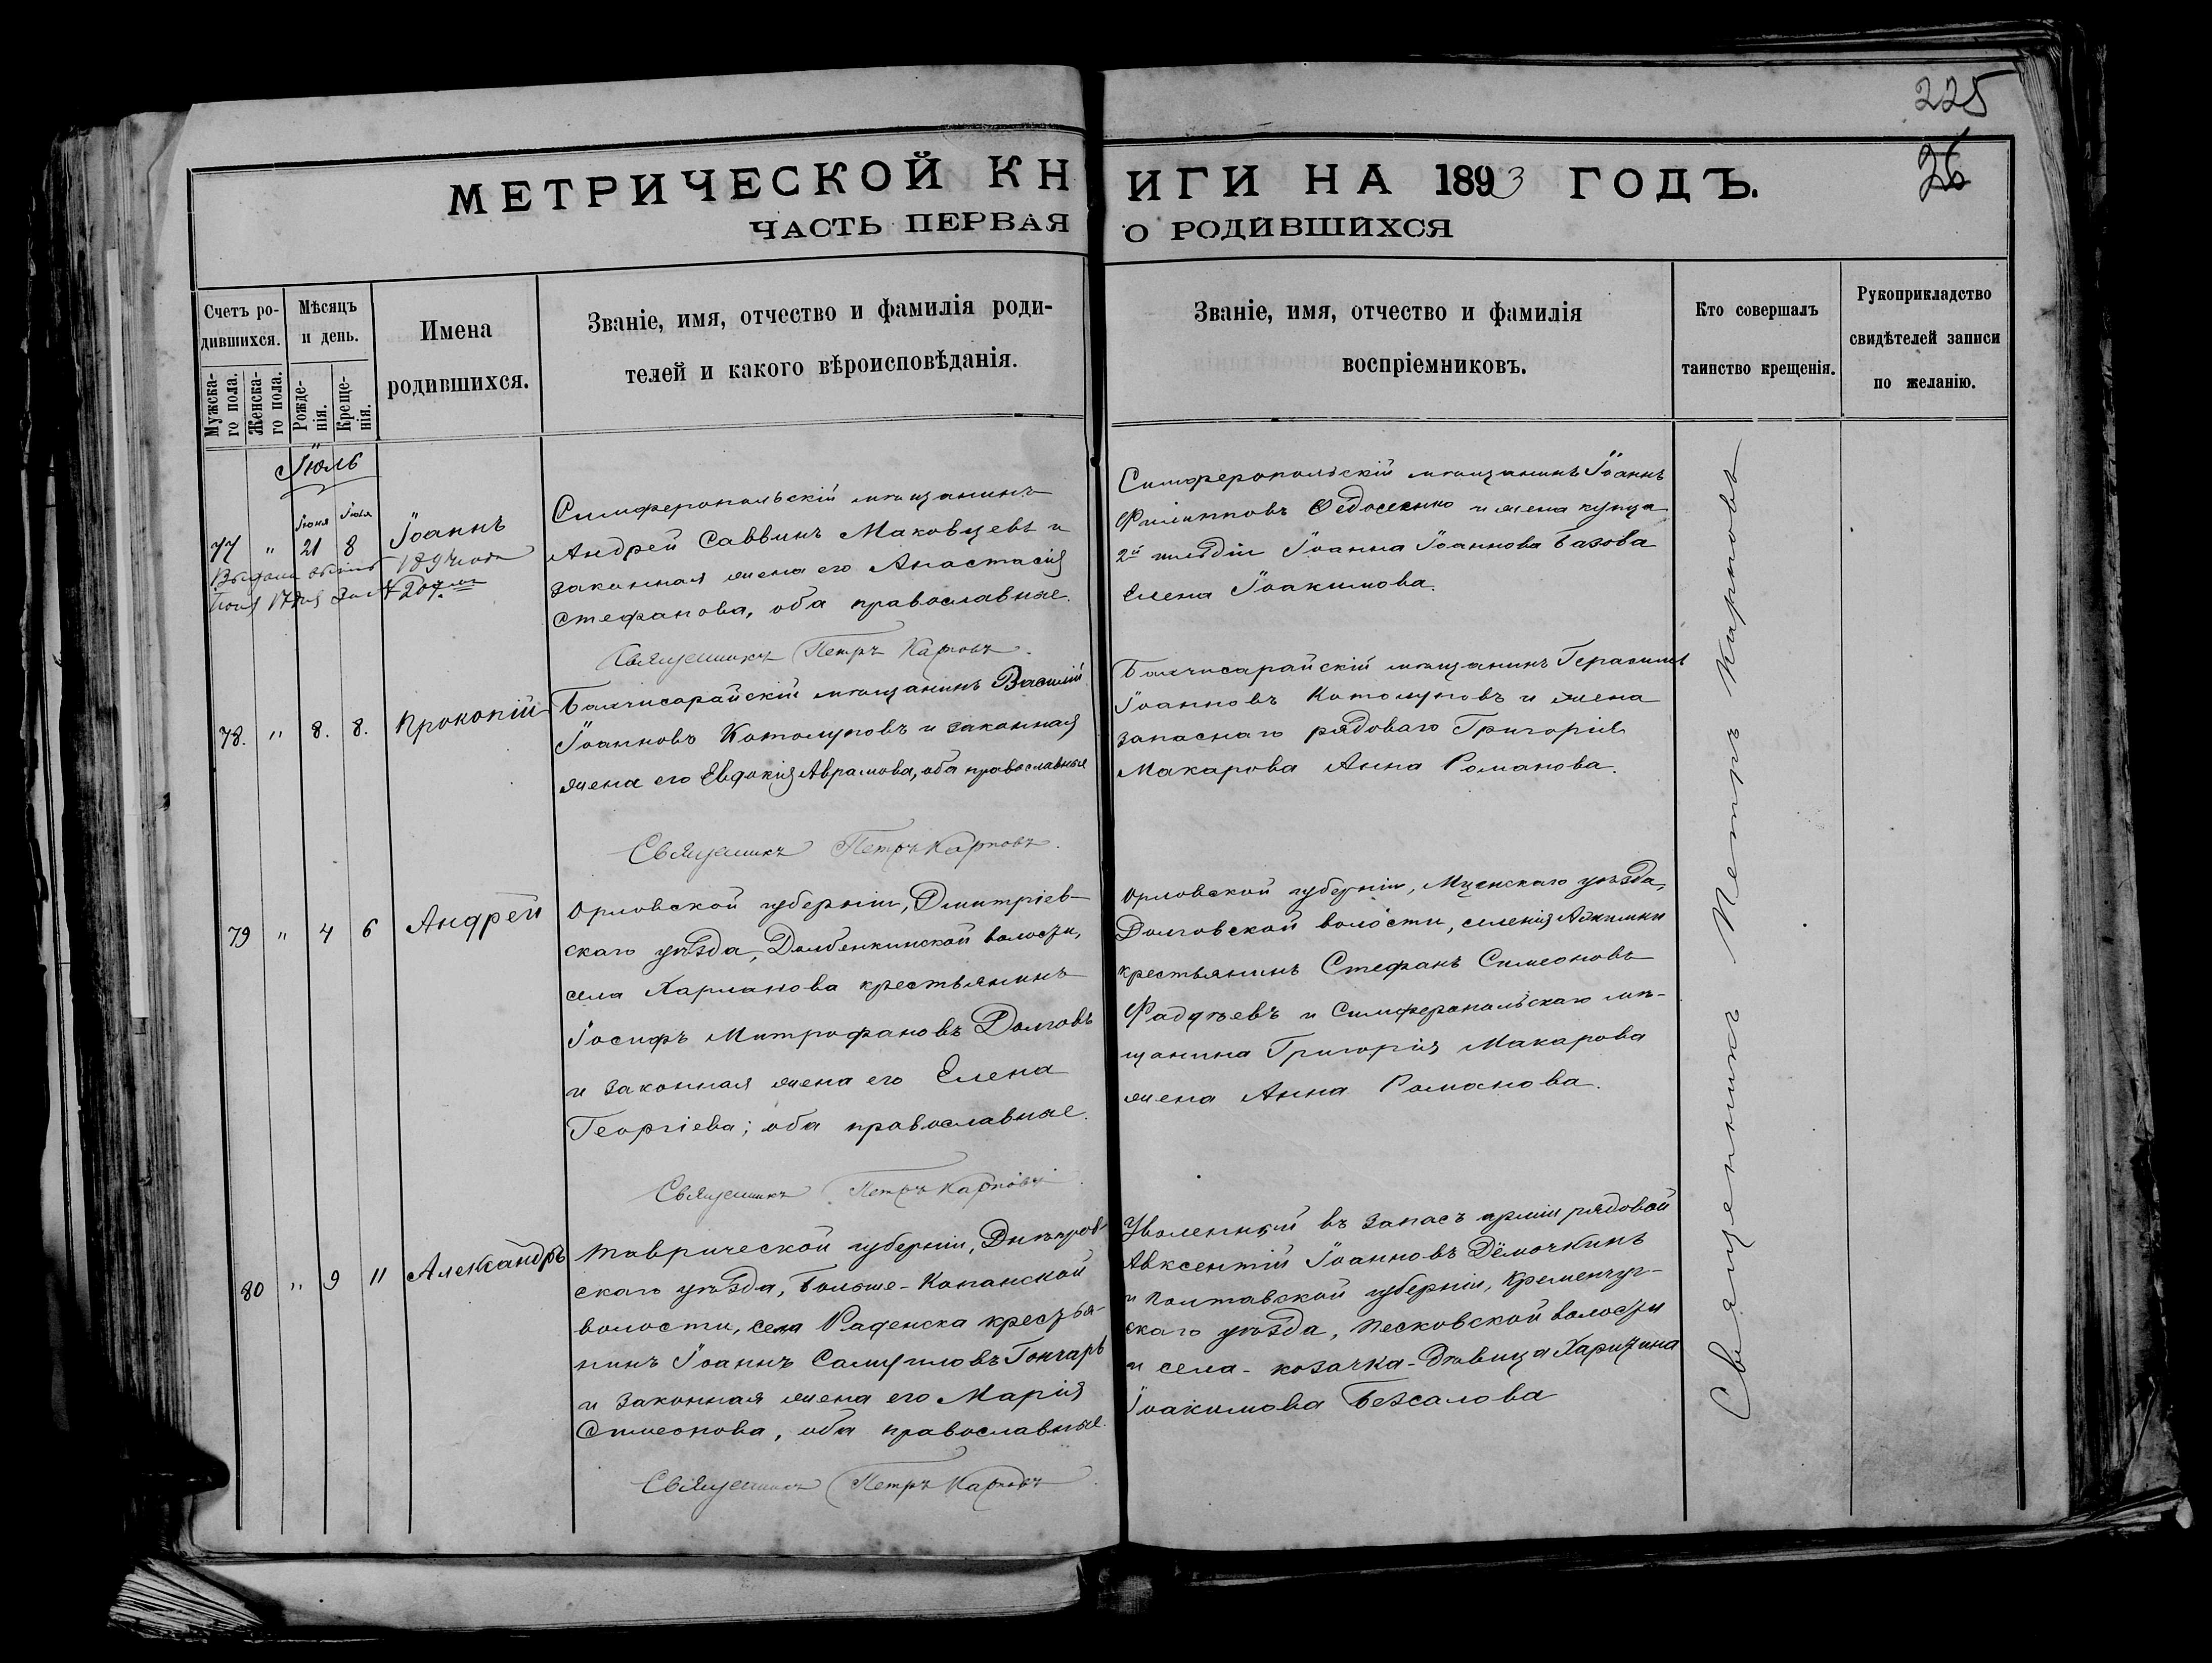 225
26
МЕТРИЧЕСКОЙ КНИГИ НА 1893 ГОДЪ.
ЧАСТЬ ПЕРВАЯ О РОДИВШИХСЯ
Счетъ ро-
дившихся.
Мужска-
го пола.
Женска-
го пола.
Мѣсяцъ
и день.
Рожде-
нія.
Креще-
нія.
Имена
родившихся.
Званіе, имя, отчество и фамилія роди-
телей и какого вѣроисповѣданія.
Званіе, имя, отчество и фамилія
воспріемниковъ.
Кто совершалъ
таинство крещенія.
Рукоприкладство
свидѣтелей записи
по желанію.
Іюль
Іюня Іюля
77 " 21 8 Іоаннъ
1894 года
Іюня 17 дня за № 207
Симферопольскій мѣщанинъ
Андрей Саввинъ Маковцевъ и
законная жена его Анастасія
Стефанова, оба православные.
Священникъ Петръ Карповъ.
Симферопольскій мѣщанинъ Іоаннъ
Филипповъ Ѳедосенко и жена купца
2й гильдіи Іоанна Іоаннова Базова
Елена Іоакимова.
78. " 8. 8. Прокопій
Бахчисарайскій мѣщанинъ Василій
Іоанновъ Котолуповъ и законная
жена его Евдокія Аврамова, оба православные
Священникъ Петръ Карповъ.
Бахчисарайскій мѣщанинъ Герасимъ
Іоанновъ Котолуповъ и жена
запаснаго рядоваго Григорія
Макарова Анна Романова.
79 " 4 6 Андрей
Орловской губерніи, Дмитріев-
скаго уѣзда, Долбенкинской волости,
села Харланова крестьянинъ
Іосифъ Митрофановъ Долговъ
и законная жена его Елена
Георгіева; оба православные.
Священникъ Петръ Карповъ.
Орловской губерніи, Мценскаго уѣзда,
Долговской волости, селенія
крестьянинъ Стефанъ Симеоновъ
Фаддѣевъ и Симферопольскаго мѣ-
щанина Григорія Макарова
жена Анна Романова.
80 " 9 11 Александръ
Таврической губерніи, Днѣпров-
скаго уѣзда, Больше-Копанской
волости, села Раденска крестья-
нинъ Іоаннъ Самуиловъ Гончаръ
и законная жена его Марія
Симеонова, оба православные.
Священникъ Петръ Карповъ.
Уволенный въ запасъ арміи рядовой
Авксентій Іоанновъ Дёмочкинъ
и Полтавской губерніи, Кременчуг-
скаго уѣзда, Песковской волости
и села - козачка - дѣвица Харитина
Іоакимова Безсалова
Священникъ Петръ Карповъ